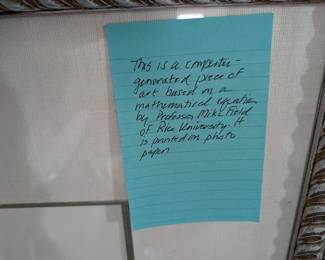 This is a computer-
generated piece of
art based on a
mathematical equation
by Professor Mike Field
of Rice University. It
is printed on photo
paper